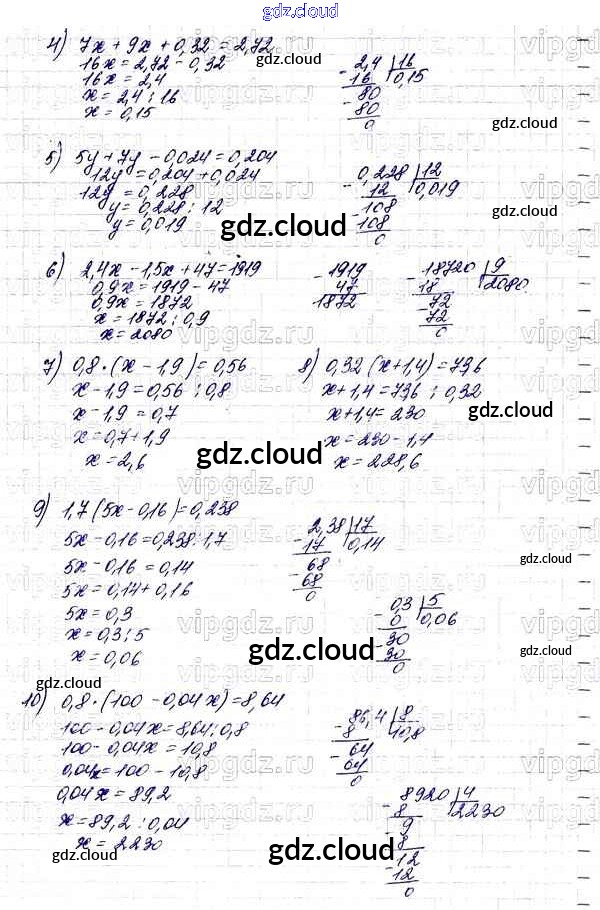 gdz.cloud
4) 7x + 9x + 0,32 = 2,72
16x = 2,72 - 0,32
16x = 2,4
x = 2,4 : 16
x = 0,15
2,4 | 16
- 16 | 0,15
80
- 80
0
gdz.cloud
gdz.cloud
5) 5y + 7y - 0,024 = 0,204
12y = 0,204 + 0,024
12y = 0,228
y = 0,228 : 12
y = 0,019
0,228 | 12
- 12 | 0,019
108
- 108
0
gdz.cloud
gdz.cloud
6) 2,4x - 1,5x + 47 = 1919
0,9x = 1919 - 47
0,9x = 1872
x = 1872 : 0,9
x = 2080
- 1919
47
1872
- 18720 | 9
18 | 2080
- 72
72
0
7) 0,8 · (x - 1,9) = 0,56
x - 1,9 = 0,56 : 0,8
x - 1,9 = 0,7
x = 0,7 + 1,9
x = 2,6
8) 0,32 (x + 1,4) = 73,6
x + 1,4 = 73,6 : 0,32
x + 1,4 = 230
x = 230 - 1,4
x = 228,6
gdz.cloud
gdz.cloud
gdz.cloud
9) 1,7 (5x - 0,16) = 0,238
5x - 0,16 = 0,238 : 1,7
5x - 0,16 = 0,14
5x = 0,14 + 0,16
5x = 0,3
x = 0,3 : 5
x = 0,06
2,38 | 17
- 17 | 0,14
68
- 68
0
- 0,3 | 5
0 | 0,06
- 30
30
0
gdz.cloud
gdz.cloud
gdz.cloud
gdz.cloud
10) 0,8 · (100 - 0,04x) = 8,64
100 - 0,04x = 8,64 : 0,8
100 - 0,04x = 10,8
0,04x = 100 - 10,8
0,04x = 89,2
x = 89,2 : 0,04
x = 2230
86,4 | 8
- 8 | 10,8
64
- 64
0
- 8920 | 4
8 | 2230
- 9
8
- 12
12
0
gdz.cloud
gdz.cloud
gdz.cloud
vipgdz.ru